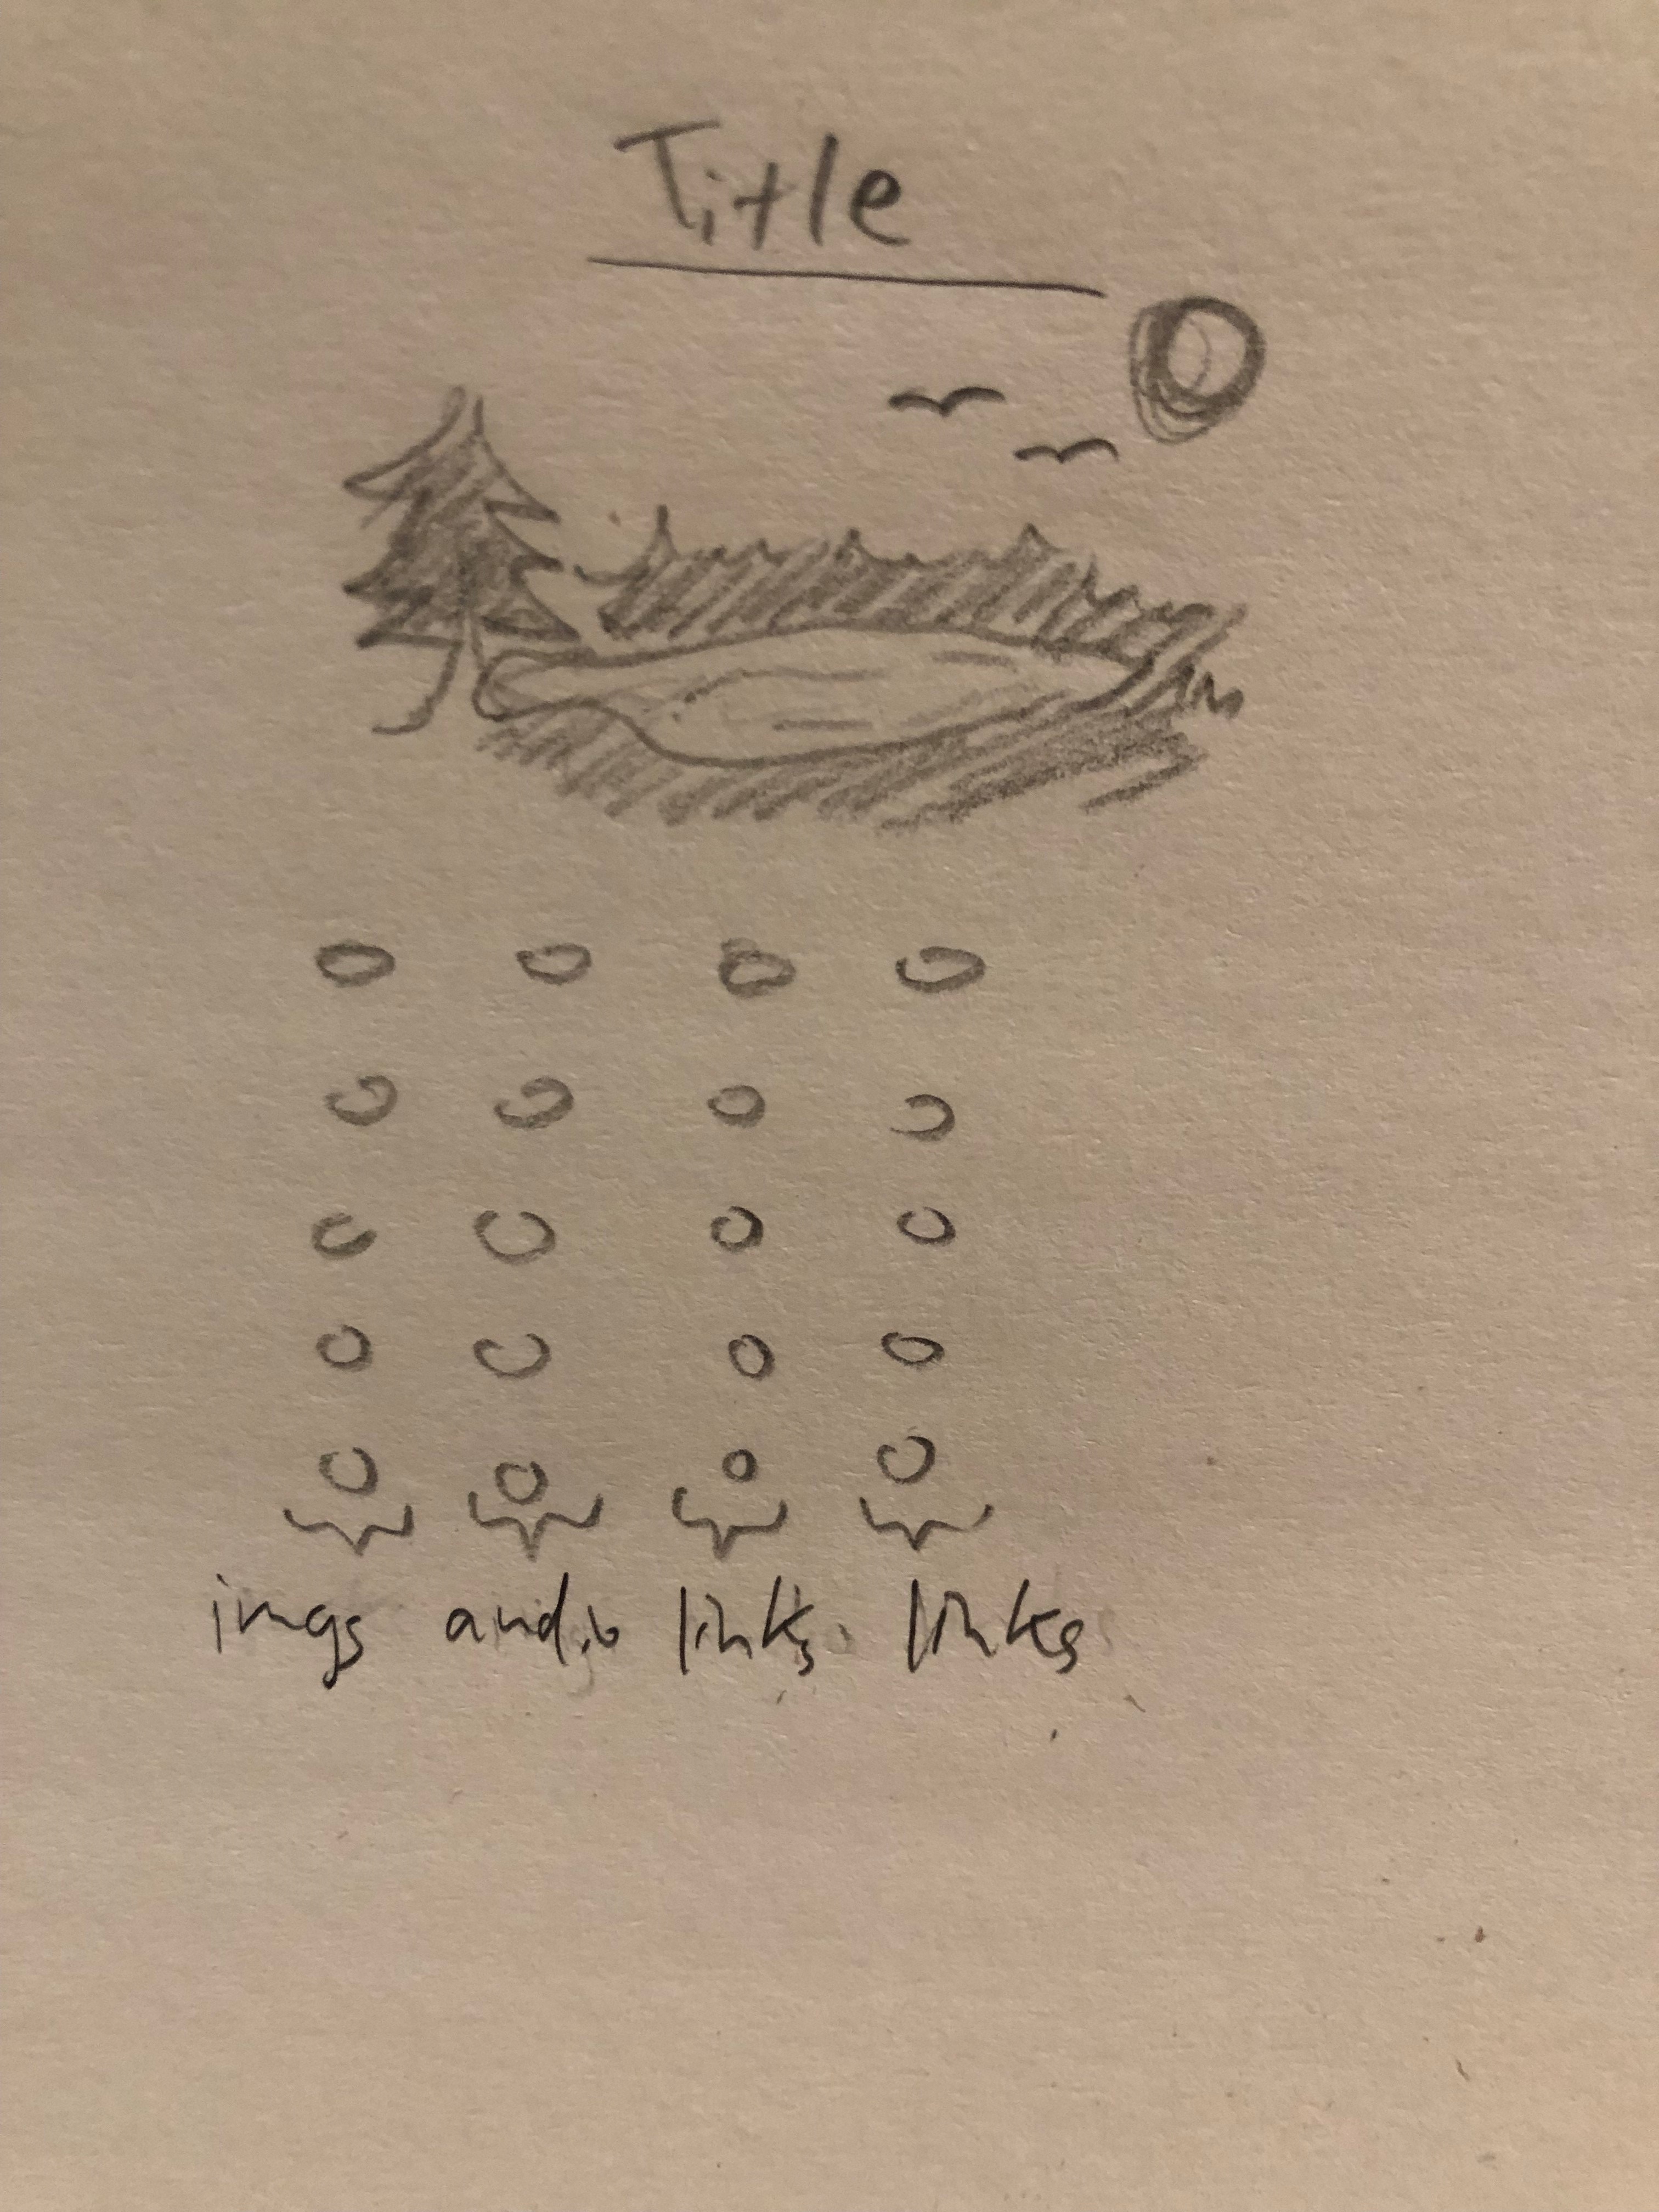 Title
imgs audio links links